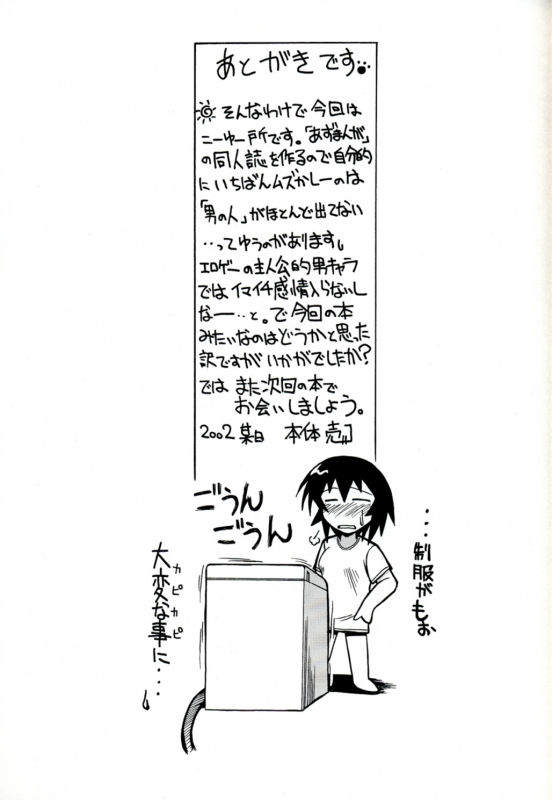 あとがきです
そんなわけで今回は
ニーゆー所です。「あずまんが」
の同人誌を作るので自分的
にいちばんムズかしーのは
「男の人」がほとんど出てない
・・ってゆうのがあります。
エロゲーの主人公的男キャラ
ではイマイチ感情入らないし
なー・・と。で今回の本
みたいなのはどうかと思った
訳ですがいかがでしたか?
ではまた次回の本で
お会いしましょう。
2002 某日 本体 売」
ごうん
ごうん
・・・制服がもぉ
大変な事に・・・
カピカピ